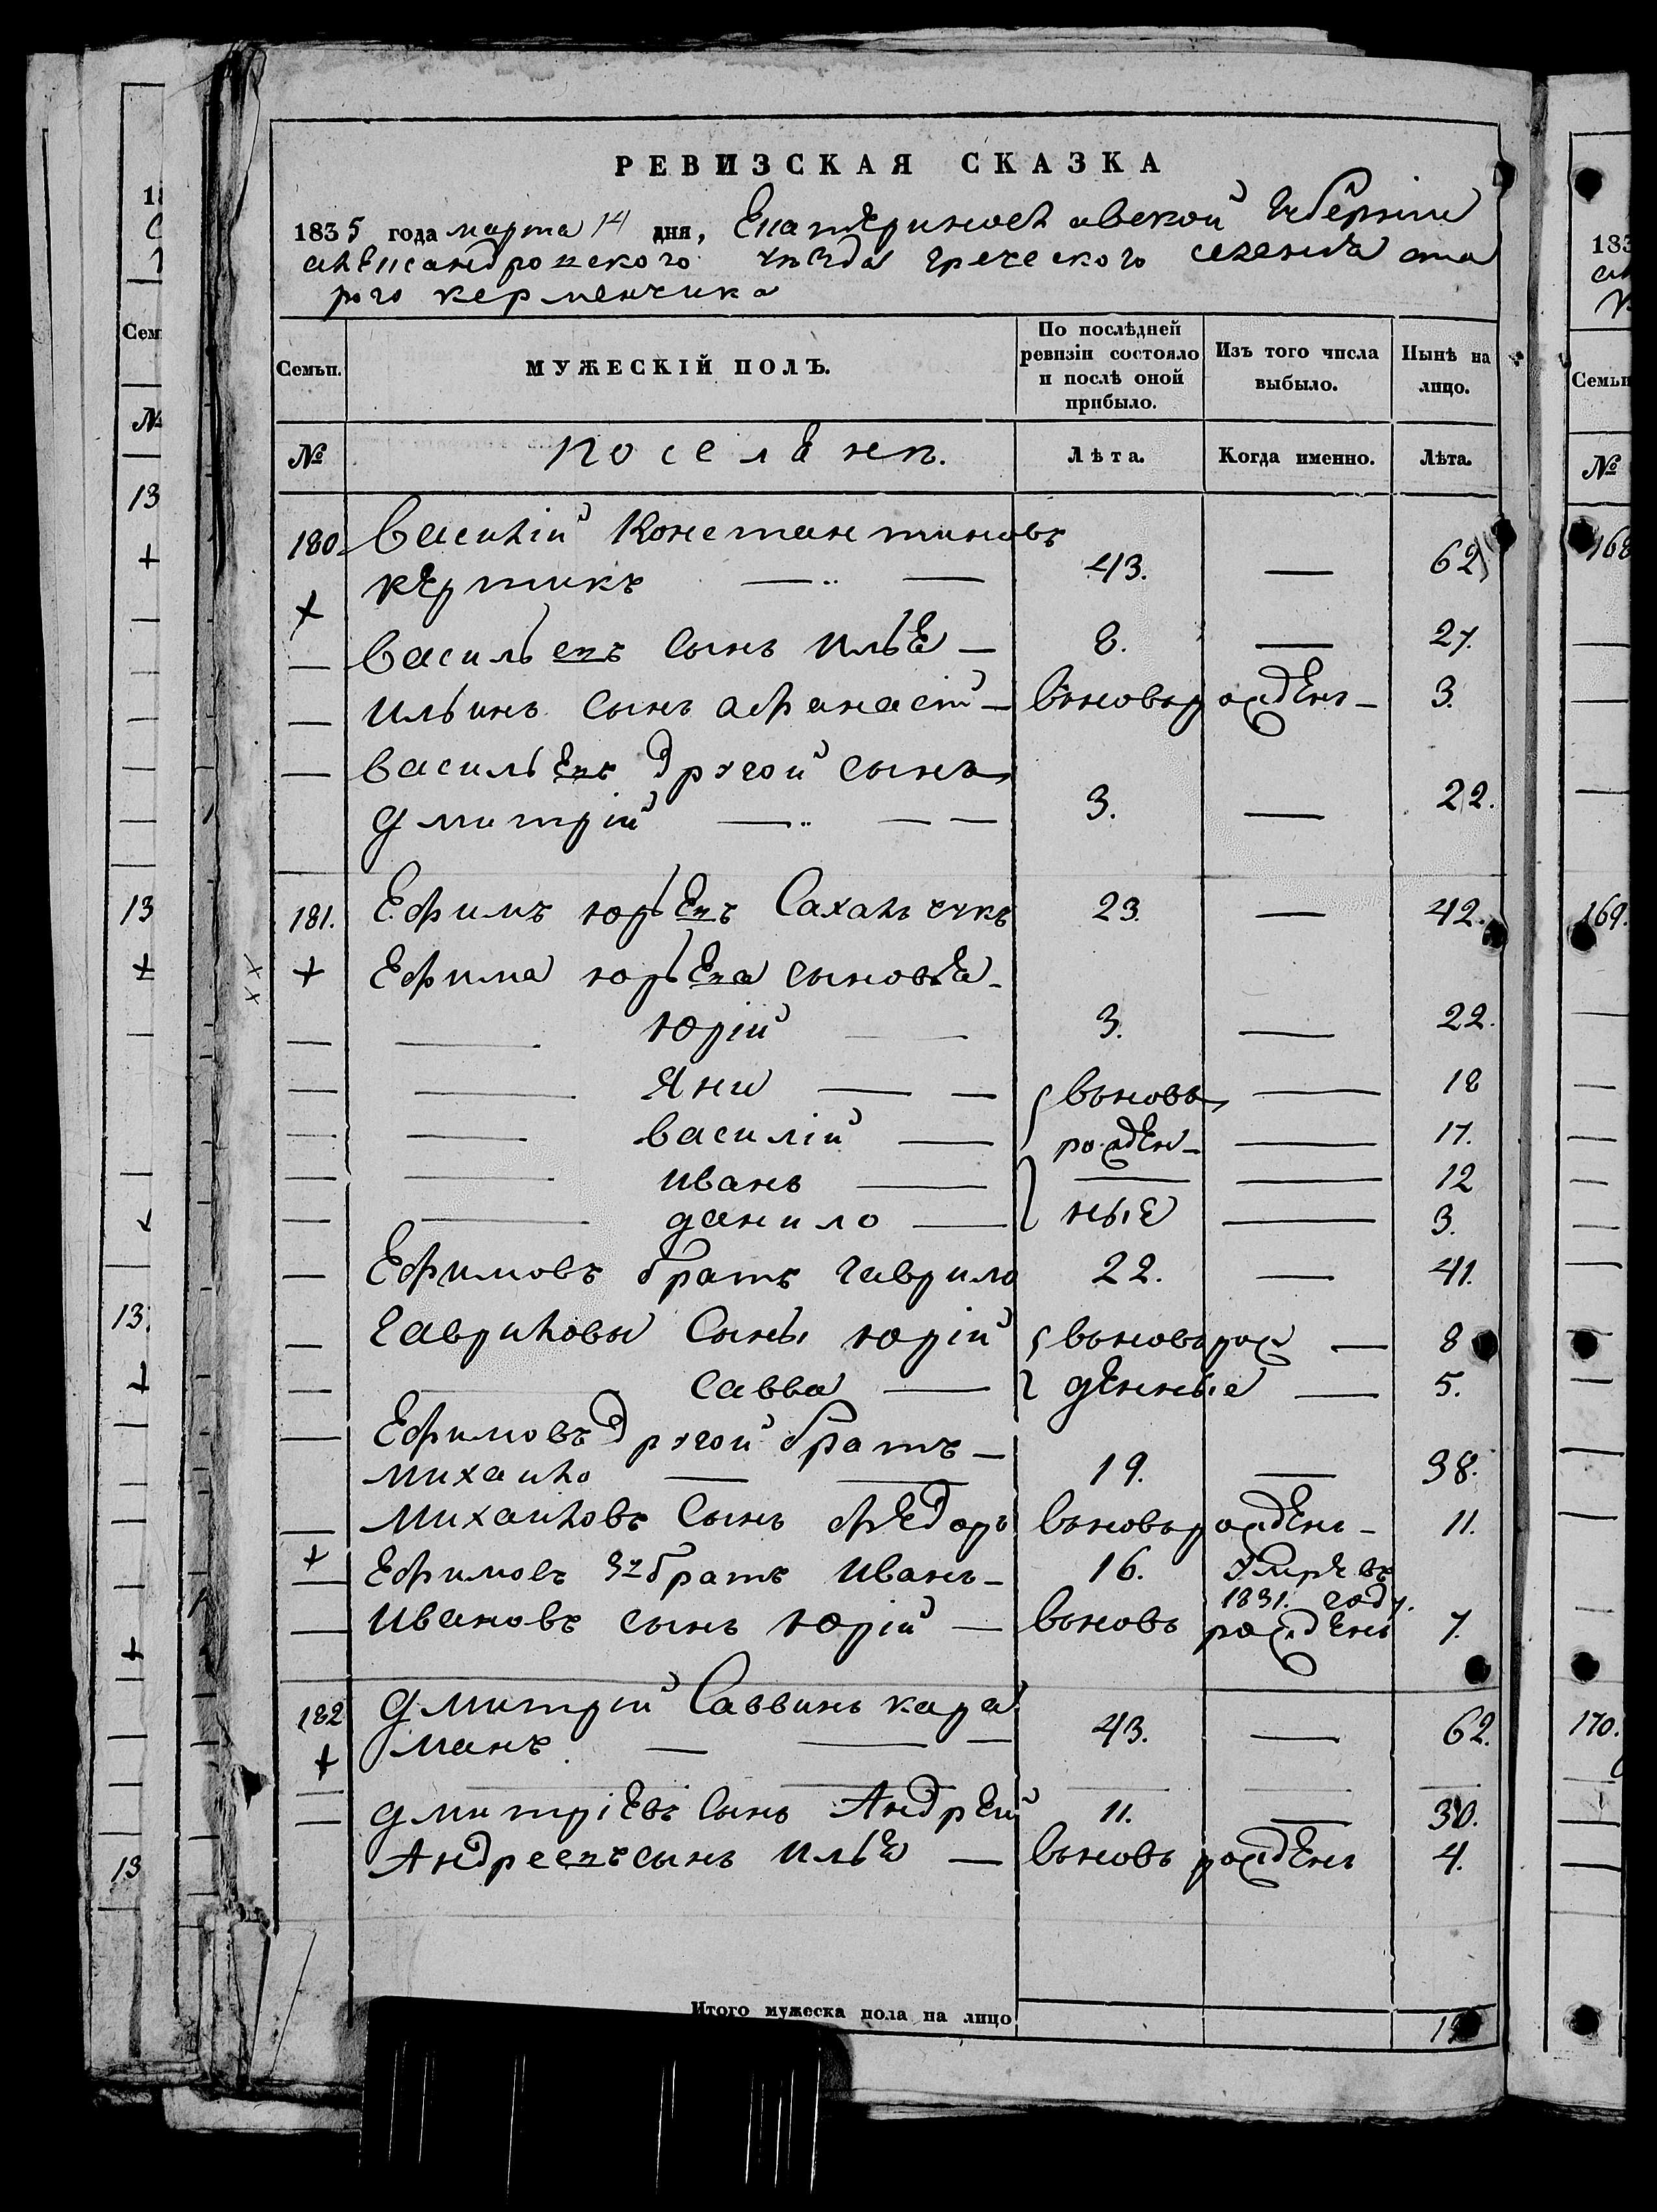 РЕВИЗСКАЯ СКАЗКА
1835 года марта 14 дня, Екатеринославской губернии
александровского уезда греческого селения ста
рого керменчика
Семьи.
МУЖЕСКІЙ ПОЛЪ.
По послѣдней ревизіи состояло и послѣ оной прибыло.
Изъ того числа выбыло.
Нынѣ на лицо.
№
поселяне.
Лѣта.
Когда именно.
Лѣта.
180 Василій Константиновъ
43. — 62
Василь евъ сынъ илья — 8. — 27.
ильинъ сынъ афанасій — вьновь рожденъ — 3.
васильевъ другой сынъ
дмитрій — 3. — 22.
181. Ефимъ юрьевъ 23. — 42.
Ефима юрьева сыновья
юрій 3. — 22.
Яни вьновь 18
василій рожден- 17.
иванъ 12
данило ные 3.
Ефимовъ братъ гаврило 22. — 41.
гавриловы сыны юрій вьновь рож — 8
савва денные — 5.
Ефимовъ другой братъ —
михайло 19. — 38.
михайловъ сынъ федоръ вьновь рожденъ — 11.
Ефимовъ 3й братъ иванъ — 16. умре въ
1831. году.
ивановъ сынъ юрій — вьновь рожденъ 7.
182 дмитрій Саввинъ кара
манъ 43. — 62.
дмитріевъ сынъ Андрей 11. — 30.
Андреевъ сынъ илья — вьновь рожденъ 4.
Итого мужеска пола на лицо
183
Семьи
№
169.
170.
Сем
№
13
13
13
13